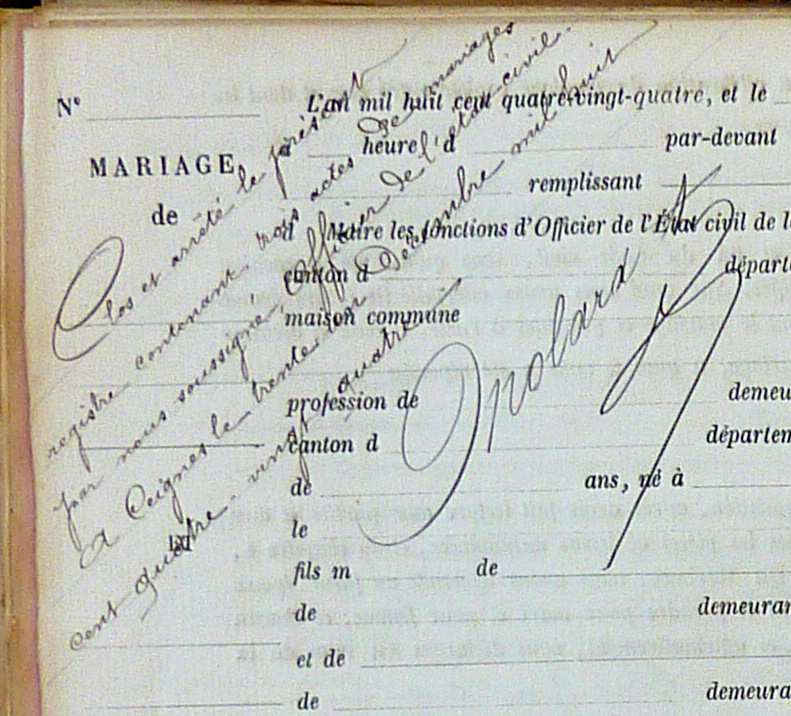 N°
L'an mil huit cent quatre-vingt-quatre, et le
heure d
par-devant
MARIAGE
remplissant
de
d Maire les fonctions d'Officier de l'État civil de l
canton d
départ
maison commune
profession de
demeu
canton d
départem
de
ans, né à
le
fils m
de
de
demeuran
et de
de
demeura
Clos et arrêté le présent
registre contenant trois actes de mariages
par nous soussigné, officier de l'état civil.
A Ceignes le trente un Décembre mil huit
cent quatre-vingt quatre